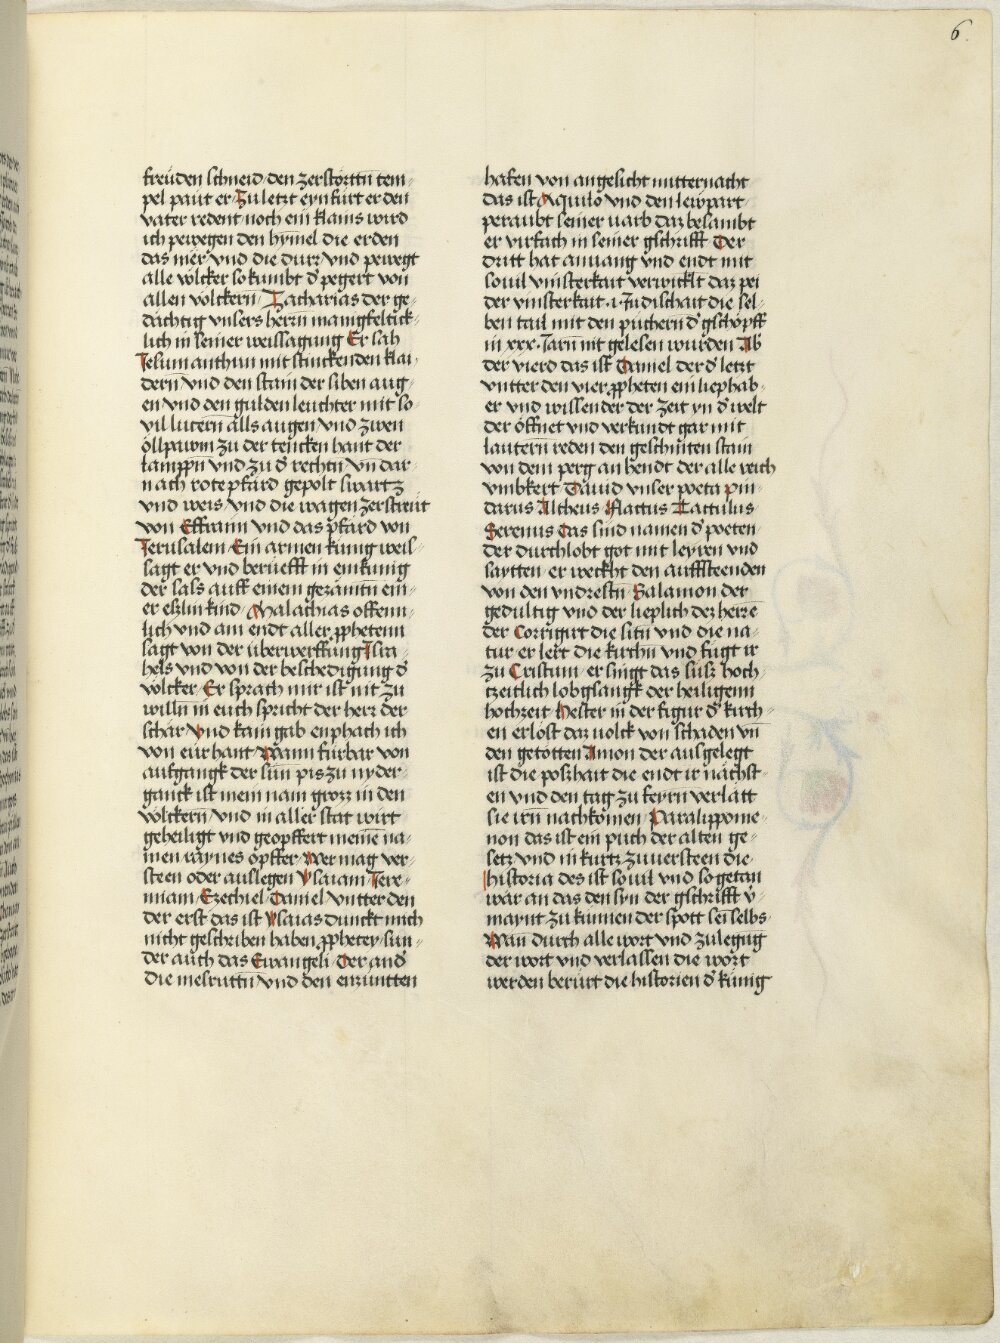 6.
freüden schneid den zerstörttn tem⸗
pel paut er Zuletzt eynfürt er den
vater redent noch ein klains wird
ich pewegen den hymel die erden
das mer vnd die dürr vnd pewegt
alle völcker so kumbt d' pegert von
allen völckern Zacharias der ge⸗
dächtig vnsers herrn manigfeltick⸗
lich in seiner weissagung Er sah
Jesum anthun mit stinckenden klai⸗
dern vnd den stain der siben aug⸗
en vnd den gulden leuchter mit so⸗
vil lucern alls augen vnd zwen
öllpawm zu der tencken hant der
lamppn vnd zu d' rechtn vn dar⸗
nach rote pfärd gepolt swartz
vnd weis vnd die wagen zerstreüt
von Effraim vnd das pfärd von
Jerusalem Ein armen künig weis⸗
sagt er vnd berüefft ein künig
der sass auff einem gezämtn ein⸗
er eslin kind Malachias offenn⸗
lich vnd am endt aller ppheten
sagt von der überwerffung Isra⸗
hels vnd von der beschedigung d'
völcker Er sprach mir ist nit zu
willn in euch spricht der herr der
schar vnd kain gab enphach ich
von eur hant Wann fürbar von
aufgangk der sun pis zu nyder⸗
ganck ist mein nam gross in den
völckern vnd in aller stat wirt
geheiligt vnd geopffert meinē na⸗
men raynes opffer Wer mag ver⸗
steen oder auslegen Ysaiam Jere⸗
miam Ezechiel Daniel vntter den
der erst das ist Ysaias dunckt mich
nicht geschriben haben pphetey sun⸗
der auch das Ewangeli Der and'
die mesruttn vnd den enzuntten
hafen von angesicht mitternacht
das ist Aquilo vnd den lewpart
peraubt seiner varb daz besambt
er virfach in seiner gschrifft Der
dritt hat anuang vnd endt mit
souil vinsterkait verwicklt daz pei
der vinsterkait .i. Judischait die sel⸗
ben tail mit den püchern d' gschöpff
in xxx. Jarn nit gelesen wurden Ab
der vierd das ist Daniel der d' letzt
vntter den vier ppheten ein liephab⸗
er vnd wissender der zeit yn d' welt
der öffnet vnd verkundt gar mit
lautern reden den geschniten stain
von dem perg an hendt der alle reich
vmbkert Dauid vnser poeta pin⸗
darus Alcheus Flactus Tactulus
Serenus Das sind namen d' poeten
der durchlobt got mit leyren vnd
saytten er weckht den aufsteenden
von den vndrestn Salamon der
gedultig vnd der lieplich dez herrē
der Corrigirt die sitn vnd die na⸗
tur er lert die kirchn vnd fügt ir
zu Cristum er singt das süss hoch⸗
tzeitlich lobgsangk der heiligenn
hochzeit Hester in der figur d' kirch⸗
en erlöst daz uolck von schaden vn
den getötten Amon der ausgelegt
ist die poshait die endt ir nächst⸗
en vnd den tag zu feyrn verlatt
sie irn nachkömen Paralippome⸗
non das ist ein puch der alten ge⸗
setz vnd in kurtz zuuersteen die
historia des ist souil vnd so getan
wär an das den syn der gschrifft v'⸗
maynt zu künnen der spott sei selbs
Wan durch alle wort vnd zulegūg
der wort vnd verlassen die wort
werden berürt die historien d' künig